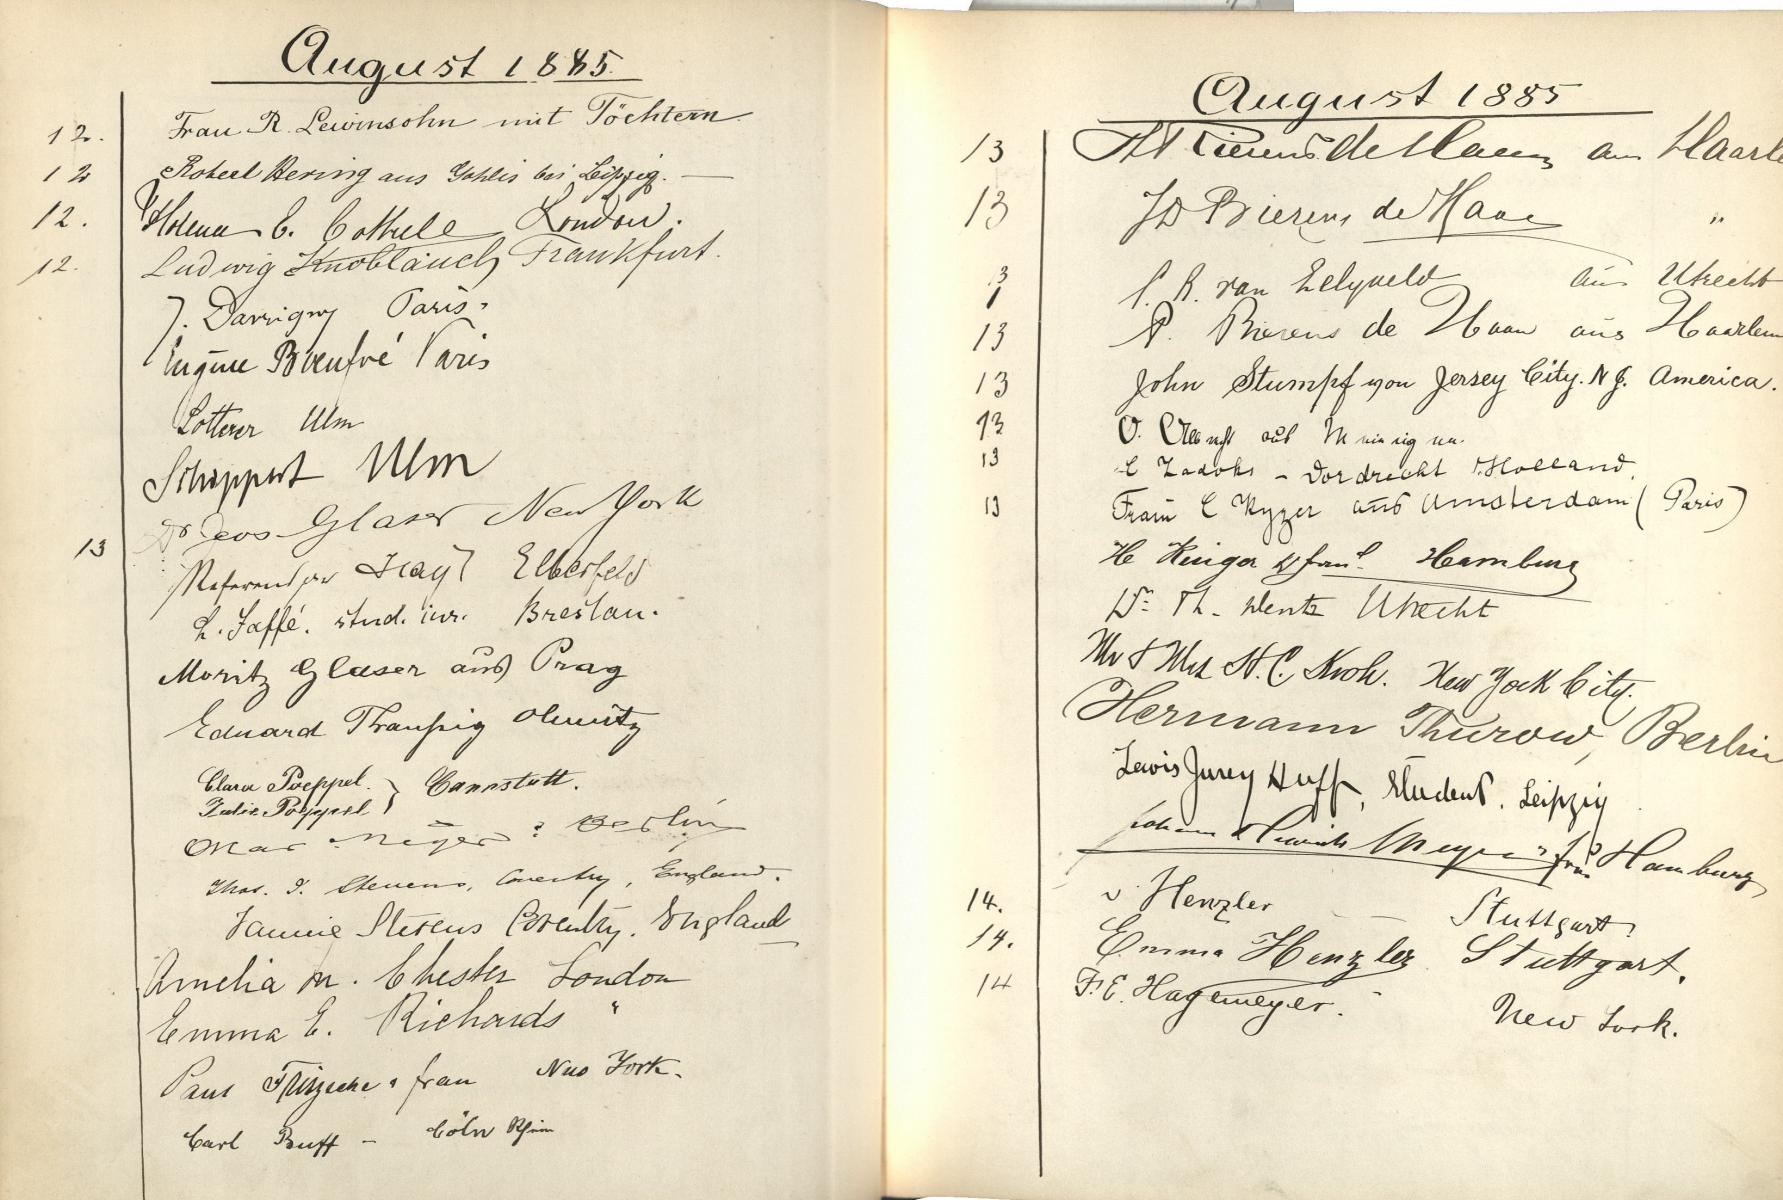 August 1885.
12. Frau R. Lewinsohn mit Töchtern
12 Robert Hering aus Gohlis bei Leipzig. —
12. E. London.
12. Ludwig Knoblauch Frankfurt.
J. Paris.
Eugène Paris
Lotterer Ulm
Ulm
Dr Glaser New York
13 Referendar Elberfeld
L. Jaffé. stud. iur. Breslau.
Moritz Glaser aus Prag
Eduard Olmütz
Clara Poeppel. } Cannstatt.
Julie Poeppel
Oskar Meyer Berlin
Thos. I. Stevens, Coventry, England.
Fannie Stevens Coventry. England
Amelia M. Chester London
Emma E. Richards "
Paul Fritzsche & frau New York.
Carl Buff – Cöln Rhein
August 1885
13 de Haan aus Haarle
13 JD Bierens de Haan "
13 van aus Utrecht
13 P. Bierens de Haan aus Haarlem
13 John Stumpf von Jersey City. N J. America.
13 O. aus
13 Zadoks – Dordrecht Holland
13 C aus Amsterdam (Paris)
H Hamburg
Dr Th. Wentz Utrecht
Mr & Mrs H. C. Kroh. New York City.
Hermann Thurow, Berlin
Lewis Jurey Huff, Student. Leipzig
Johann Hinrich Meyer & frau Hamburg
14. v. Henzler — Stuttgart.
14. Emma Henzler Stuttgart.
14 F. E. Hagemeyer. New York.